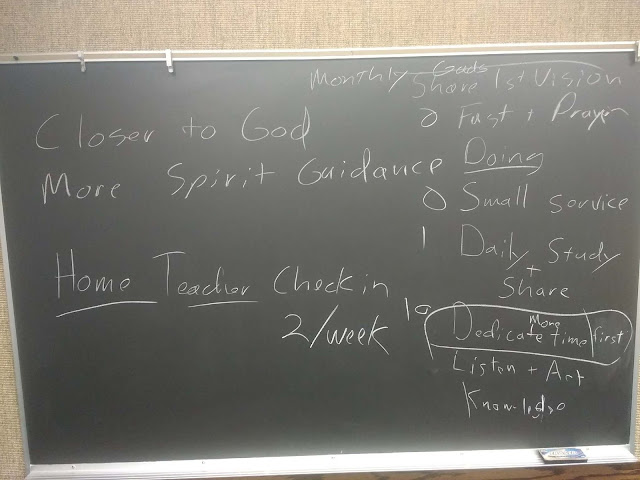 Closer to God
More Spirit Guidance
Home Teacher Check in
2/week
Monthly Goals
Share 1st Vision
0 Fast + Prayer
Doing
0 Small service
1 Daily Study
+
Share
10 Dedicate more time first
Listen + Act
Knowledge